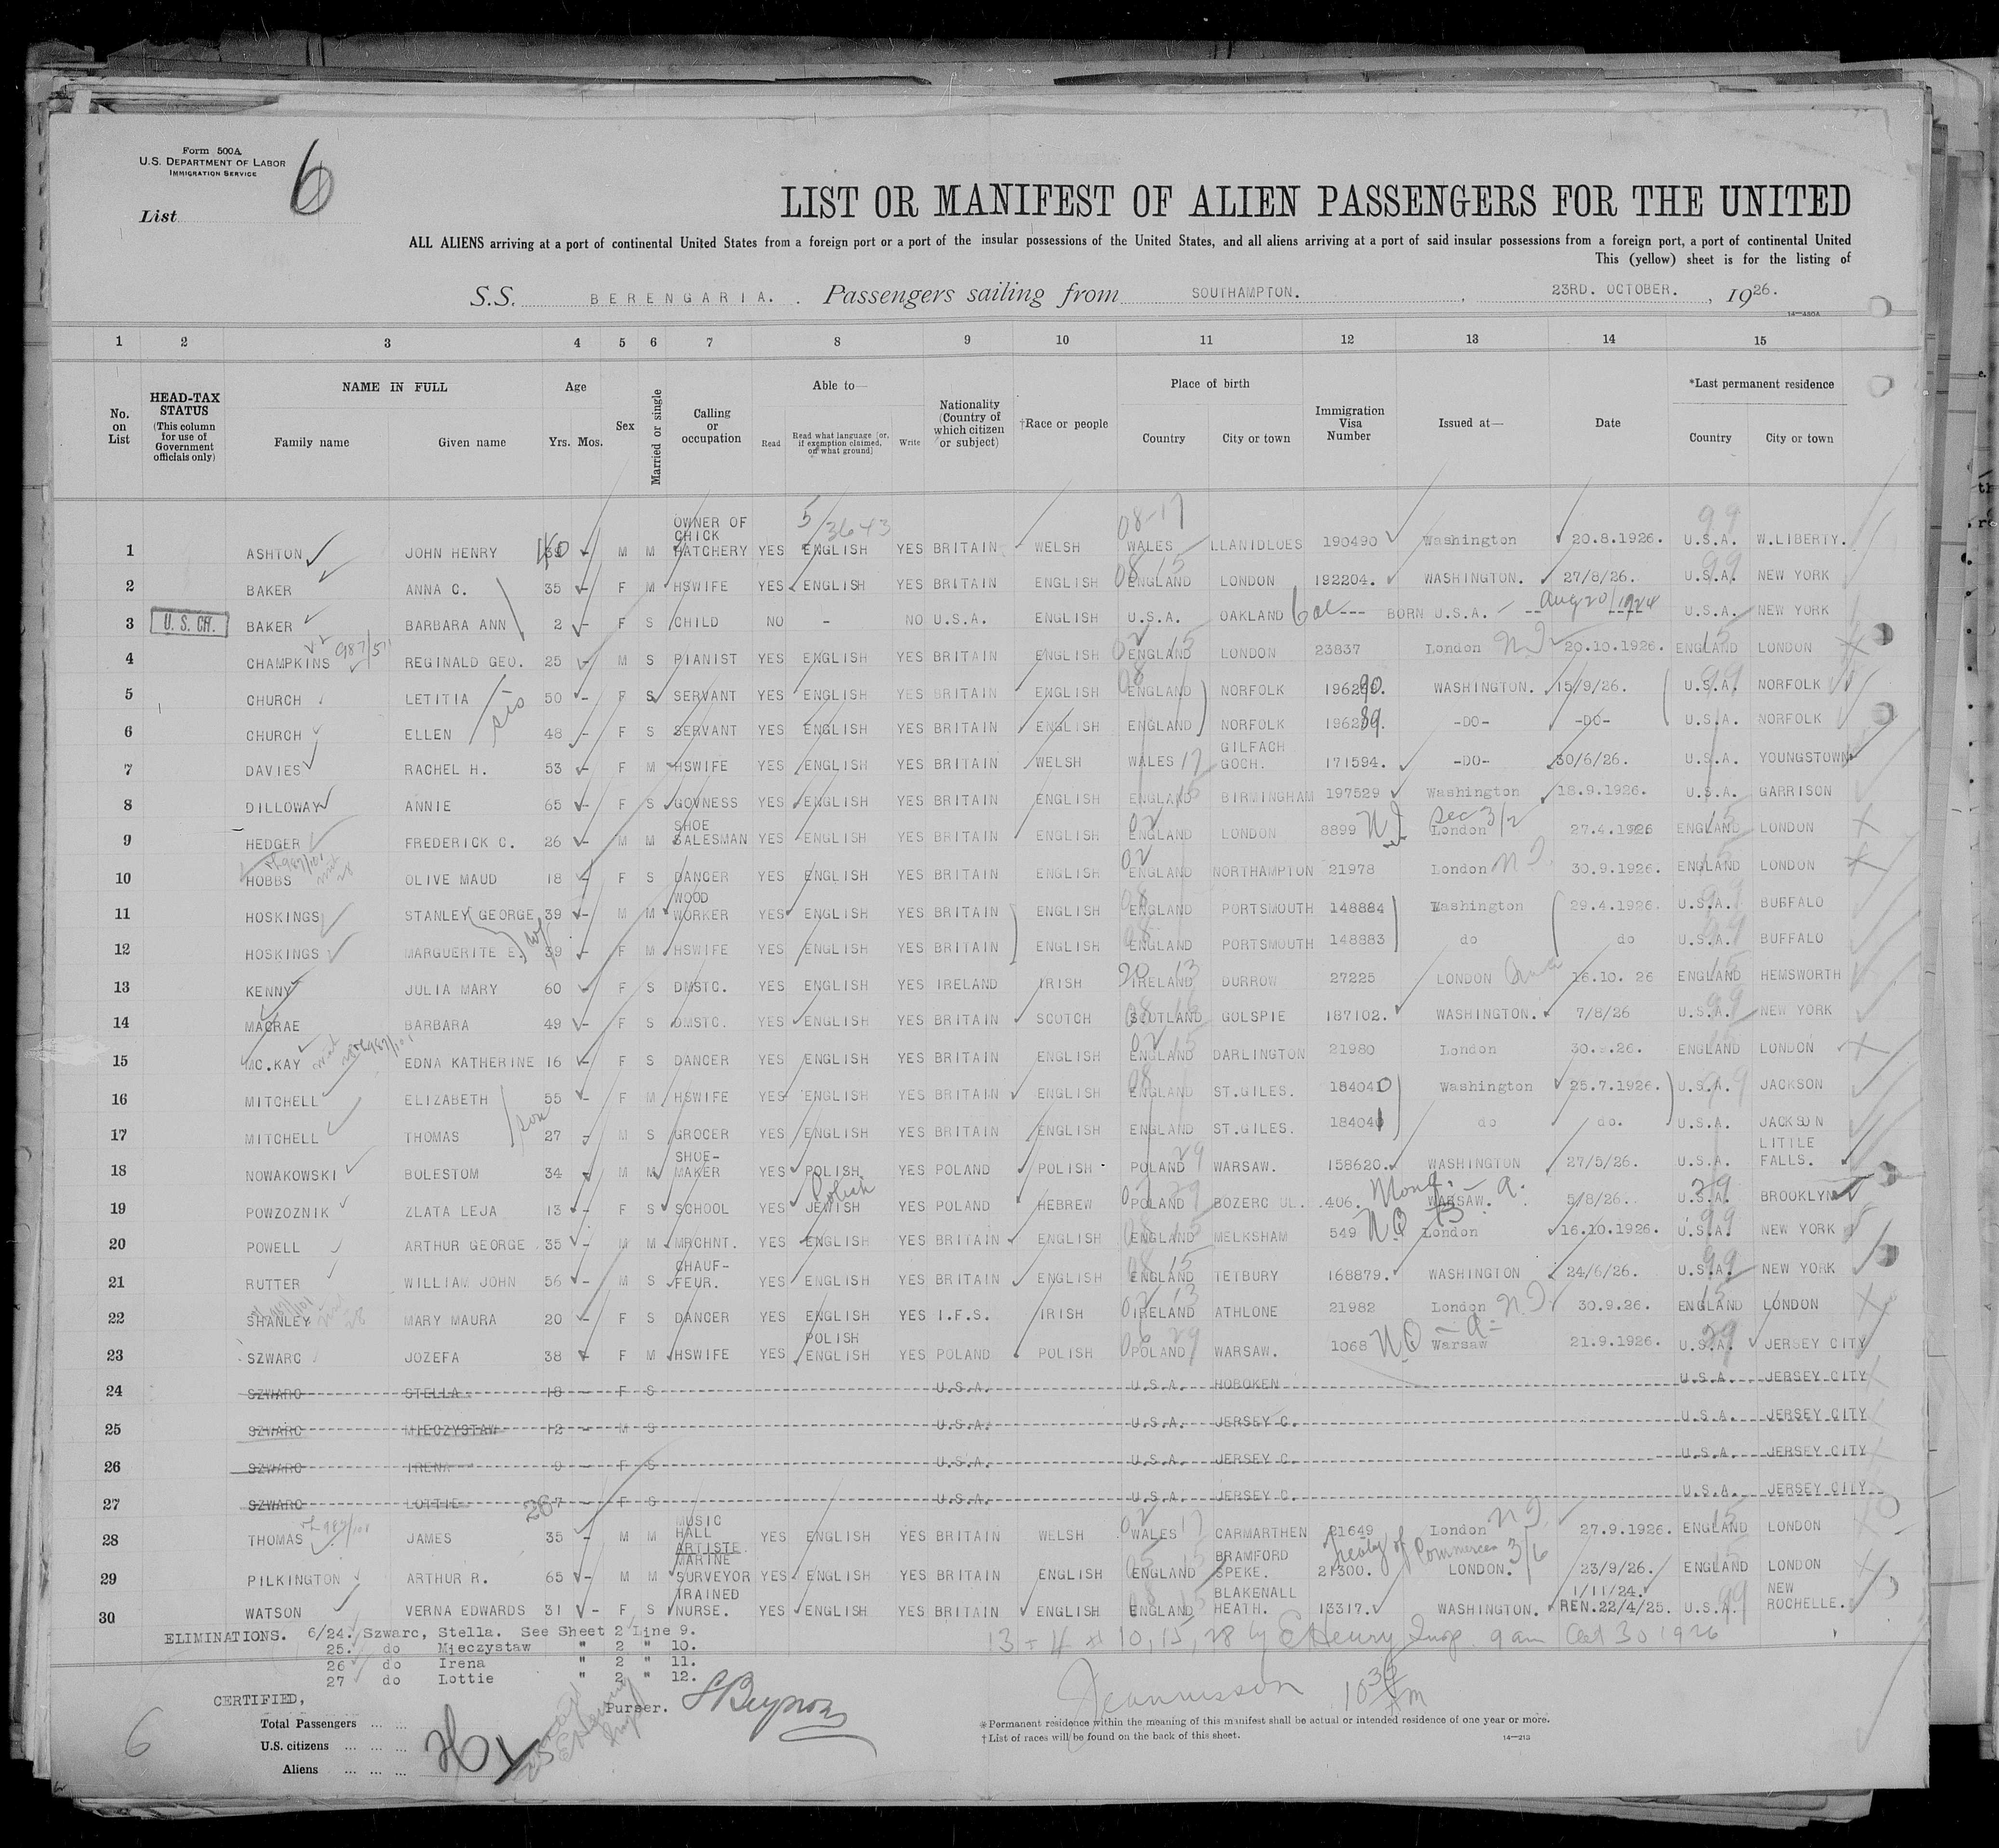 Form 500A
U.S. DEPARTMENT OF LABOR
IMMIGRATION SERVICE
6
List
LIST OR MANIFEST OF ALIEN PASSENGERS FOR THE UNITED
ALL ALIENS arriving at a port of continental United States from a foreign port or a port of the insular possessions of the United States, and all aliens arriving at a port of said insular possessions from a foreign port, a port of continental United
This (yellow) sheet is for the listing of
S.S. BERENGARIA. Passengers sailing from SOUTHAMPTON. , 23RD. OCTOBER. , 1926.
14—480A
1 2 3 4 5 6 7 8 9 10 11 12 13 14 15
No. on List
HEAD-TAX STATUS (This column for use of Government officials only)
NAME IN FULL Family name Given name
Age Yrs. Mos.
Sex
Married or single
Calling or occupation
Able to— Read Read what language (or, if exemption claimed, on what ground) Write
Nationality (Country of which citizen or subject)
†Race or people
Place of birth Country City or town
Immigration Visa Number
Issued at—
Date
*Last permanent residence Country City or town
5/3643 08-17 99
1 ASHTON JOHN HENRY 40 M M OWNER OF CHICK HATCHERY YES ENGLISH YES BRITAIN WELSH WALES LLANIDLOES 190490 Washington 20.8.1926. U.S.A. W.LIBERTY.
2 BAKER ANNA C. 35 - F M HSWIFE YES ENGLISH YES BRITAIN ENGLISH ENGLAND LONDON 192204. WASHINGTON. 27/8/26. U.S.A. NEW YORK
3 U.S. CIT. BAKER BARBARA ANN 2 - F S CHILD NO - NO U.S.A. ENGLISH U.S.A. OAKLAND Cal --- BORN U.S.A. Aug 20/1924 U.S.A. NEW YORK
4 CHAMPKINS REGINALD GEO. 25 - M S PIANIST YES ENGLISH YES BRITAIN ENGLISH ENGLAND LONDON 23837 London N.I. 20.10.1926. ENGLAND LONDON
5 CHURCH LETITIA 50 - F S SERVANT YES ENGLISH YES BRITAIN ENGLISH ENGLAND NORFOLK 196290. WASHINGTON. 15/9/26. U.S.A. NORFOLK
sis
6 CHURCH ELLEN 48 - F S SERVANT YES ENGLISH YES BRITAIN ENGLISH ENGLAND NORFOLK 196289. -DO- -DO- U.S.A. NORFOLK
7 DAVIES RACHEL H. 53 - F M HSWIFE YES ENGLISH YES BRITAIN WELSH WALES 17 GILFACH GOCH. 171594. -DO- 30/6/26. U.S.A. YOUNGSTOWN
8 DILLOWAY ANNIE 65 - F S GOVNESS YES ENGLISH YES BRITAIN ENGLISH ENGLAND BIRMINGHAM 197529 Washington 18.9.1926. U.S.A. GARRISON
9 HEDGER FREDERICK C. 26 - M M SHOE SALESMAN YES ENGLISH YES BRITAIN ENGLISH ENGLAND LONDON 8899 N.I. Sec 3/2 London 27.4.1926 ENGLAND LONDON
10 HOBBS OLIVE MAUD 18 F S DANCER YES ENGLISH YES BRITAIN ENGLISH ENGLAND NORTHAMPTON 21978 London N.I. 30.9.1926. ENGLAND LONDON
11 HOSKINGS STANLEY GEORGE 39 - M M WOOD WORKER YES ENGLISH YES BRITAIN ENGLISH ENGLAND PORTSMOUTH 148884 Washington 29.4.1926. U.S.A. BUFFALO
12 HOSKINGS MARGUERITE E. wf 39 - F M HSWIFE YES ENGLISH YES BRITAIN ENGLISH ENGLAND PORTSMOUTH 148883 do do U.S.A. BUFFALO
13 KENNY JULIA MARY 60 - F S DMSTC. YES ENGLISH YES IRELAND IRISH IRELAND DURROW 27225 LONDON 16.10. 26 ENGLAND HEMSWORTH
14 MACRAE BARBARA 49 - F S DMSTC. YES ENGLISH YES BRITAIN SCOTCH SCOTLAND GOLSPIE 187102. WASHINGTON. 7/8/26 U.S.A. NEW YORK
15 MC.KAY EDNA KATHERINE 16 - F S DANCER YES ENGLISH YES BRITAIN ENGLISH ENGLAND DARLINGTON 21980 London 30.9.26. ENGLAND LONDON
16 MITCHELL ELIZABETH 55 - F M HSWIFE YES ENGLISH YES BRITAIN ENGLISH ENGLAND ST.GILES. 184040 Washington 25.7.1926. U.S.A. JACKSON
son
17 MITCHELL THOMAS 27 - M S GROCER YES ENGLISH YES BRITAIN ENGLISH ENGLAND ST.GILES. 184041 do do. U.S.A. JACKSON
18 NOWAKOWSKI BOLESTOM 34 - M M SHOE-MAKER YES POLISH YES POLAND POLISH POLAND WARSAW. 158620. WASHINGTON 27/5/26. U.S.A. LITTLE FALLS.
19 POWZOZNIK ZLATA LEJA 13 - F S SCHOOL YES Polish JEWISH YES POLAND HEBREW POLAND BOZERC UL. 406. WARSAW. 5/8/26. U.S.A. BROOKLYN
20 POWELL ARTHUR GEORGE 35 - M M MRCHNT. YES ENGLISH YES BRITAIN ENGLISH ENGLAND MELKSHAM 549 N.Q London 16.10.1926. U.S.A. NEW YORK
21 RUTTER WILLIAM JOHN 56 - M S CHAUF-FEUR. YES ENGLISH YES BRITAIN ENGLISH ENGLAND TETBURY 168879. WASHINGTON 24/6/26. U.S.A. NEW YORK
22 SHANLEY MARY MAURA 20 - F S DANCER YES ENGLISH YES I.F.S. IRISH IRELAND ATHLONE 21982 London N.I. 30.9.26. ENGLAND LONDON
23 SZWARC JOZEFA 38 - F M HSWIFE YES POLISH ENGLISH YES POLAND POLISH POLAND WARSAW. 1068 N.Q Warsaw 21.9.1926. U.S.A. JERSEY CITY
24 SZWARC STELLA 18 - F S U.S.A. U.S.A. HOBOKEN U.S.A. JERSEY CITY
25 SZWARC MIECZYSTAW 12 - M S U.S.A. U.S.A. JERSEY C. U.S.A. JERSEY CITY
26 SZWARC IRENA 9 - F S U.S.A. U.S.A. JERSEY C. U.S.A. JERSEY CITY
27 SZWARC LOTTIE 7 - F S U.S.A. U.S.A. JERSEY C. U.S.A. JERSEY CITY
28 THOMAS JAMES 35 - M M MUSIC HALL ARTISTE. YES ENGLISH YES BRITAIN WELSH WALES 17 CARMARTHEN 21649 London N.I. 27.9.1926. ENGLAND LONDON
Treaty of Commerce 3/6
29 PILKINGTON ARTHUR R. 65 - M M MARINE SURVEYOR YES ENGLISH YES BRITAIN ENGLISH ENGLAND BRAMFORD SPEKE. 21300. LONDON. 23/9/26. ENGLAND LONDON
30 WATSON VERNA EDWARDS 31 - F S TRAINED NURSE. YES ENGLISH YES BRITAIN ENGLISH ENGLAND BLAKENALL HEATH. 13317. WASHINGTON. 1/11/24. REN.22/4/25. U.S.A. NEW ROCHELLE.
ELIMINATIONS. 6/24. Szwarc, Stella. See Sheet 2 Line 9.
25. do Mieczystaw " 2 " 10.
26 do Irena " 2 " 11.
27 do Lottie " 2 " 12.
10, 15, 28 by E Henry Insp. 9 am Oct 30 1926
CERTIFIED, Purser.
Total Passengers ... ...
U.S. citizens ... ... ...
Aliens ... ... ...
6
*Permanent residence within the meaning of this manifest shall be actual or intended residence of one year or more.
†List of races will be found on the back of this sheet.
14—213